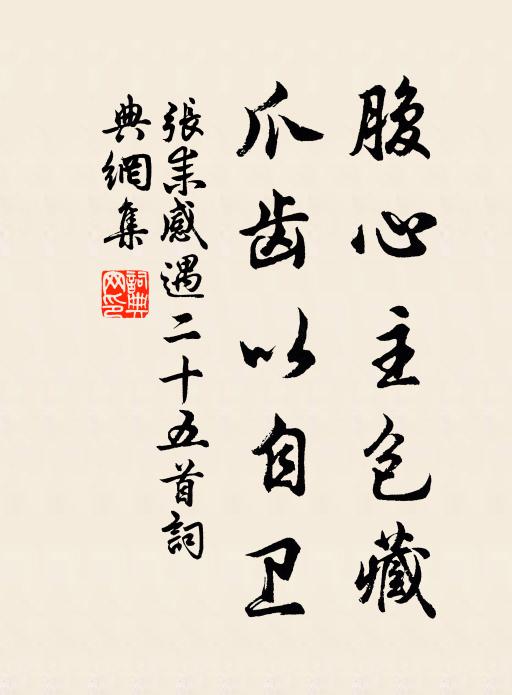 腹心主包藏
爪齿以自卫
張耒感遇二十五首詞
典網集
詞典网印